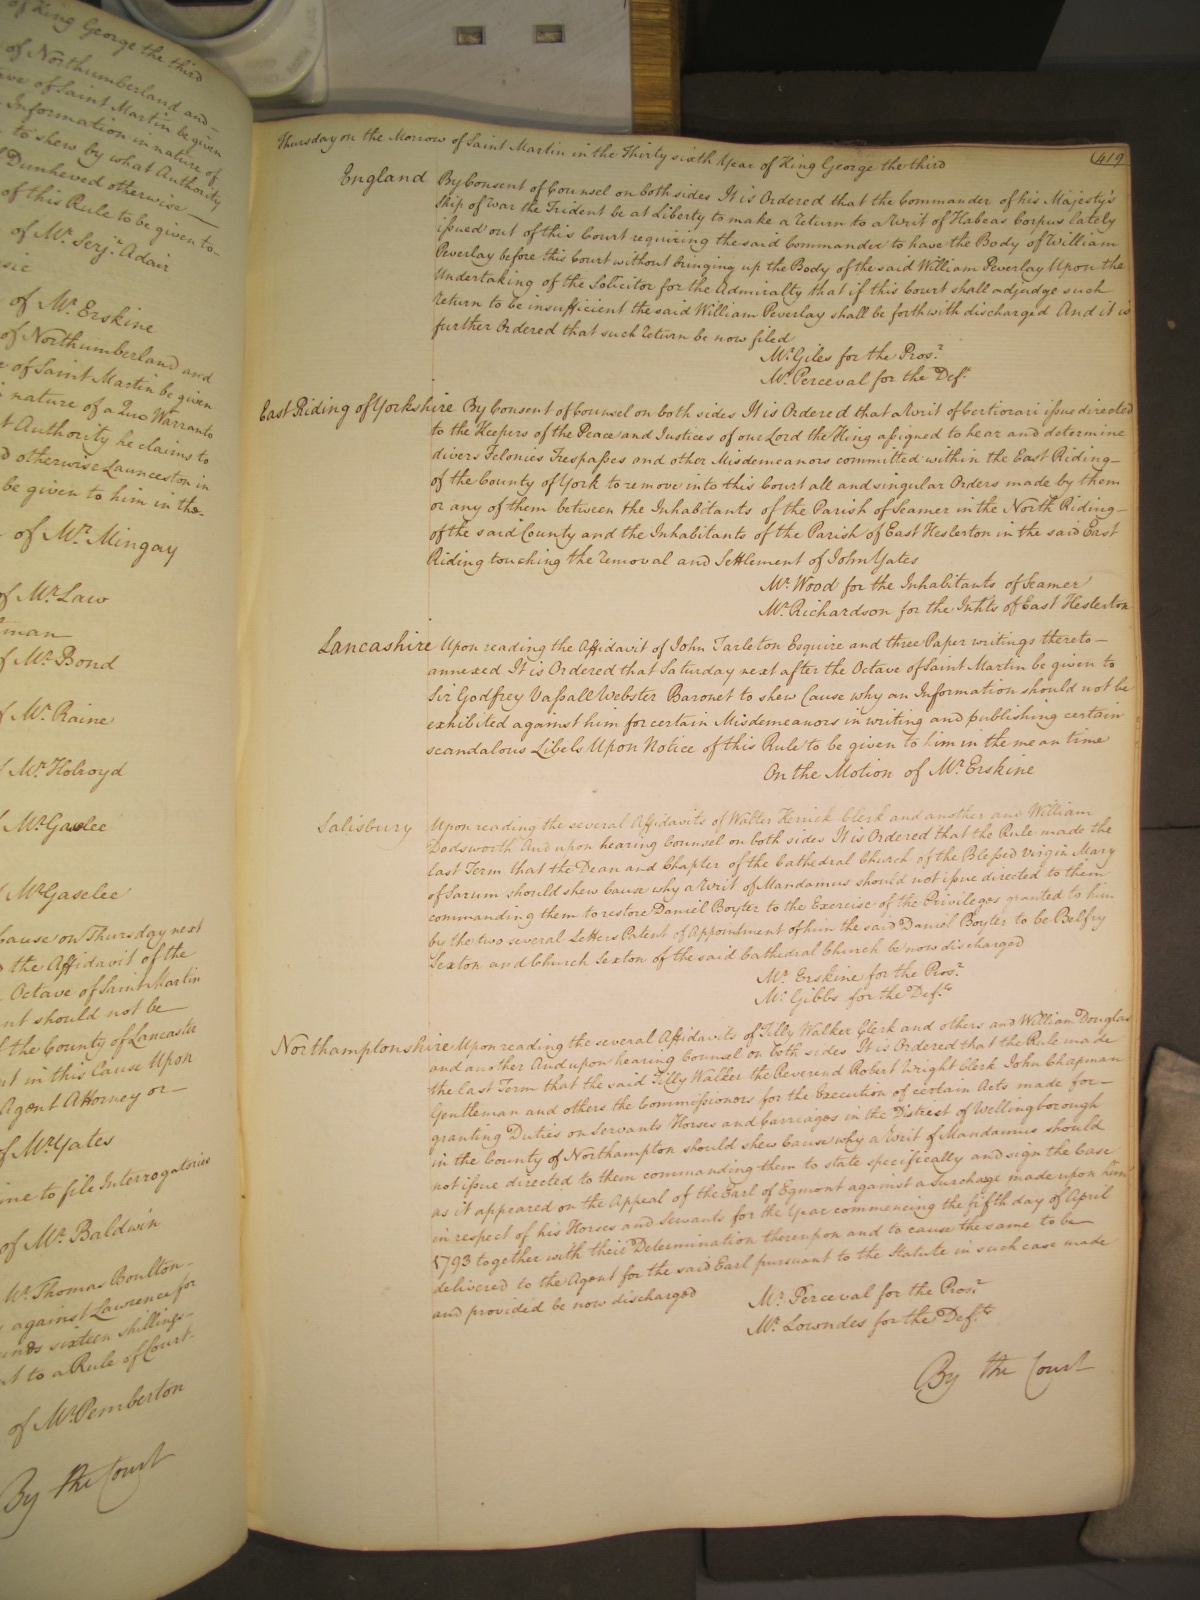 of King George the third
of Northumberland and
ave of Saint Martin be given
Information in nature of
to shew by what Authority
Dunheved otherwise
of this Rule to be given to
of Mr. Serjt. Adair
of Mr. Erskine
of Northumberland and
of Saint Martin be given
nature of a Quo Warranto
Authority he claims to
otherwise Launceston in
be given to him in the
of Mr. Mingay
of Mr. Law
of Mr. Bond
Mr. Raine
Mr. Holroyd
Mr. Gaselee
Mr. Gaselee
Cause on Thursday next
the Affidavit of the
Octave of Saint Martin
nt should not be
the County of Lancaster
in this Cause Upon
Agent Attorney or
of Mr. Yates
ine to file Interrogatories
of Mr. Baldwin
Mr. Thomas Boulton
against Lawrence for
unds sixteen shillings
to a Rule of Court
of Mr. Pemberton
By the Court
Thursday on the Morrow of Saint Martin in the Thirty sixth Year of King George the third
419
England By Consent of Counsel on both sides It is Ordered that the Commander of his Majesty's
Ship of War the Trident be at Liberty to make a Return to a Writ of Habeas Corpus lately
issued out of this Court requiring the said Commander to have the Body of William
Peverlay before this Court without bringing up the Body of the said William Peverlay Upon the
Undertaking of the Solicitor for the Admiralty that if this Court shall adjudge such
Return to be insufficient the said William Peverlay shall be forthwith discharged And it is
further Ordered that such Return be now filed
Mr. Giles for the Prosr.
Mr. Perceval for the Deft.
East Riding of Yorkshire By Consent of Counsel on both sides It is Ordered that a Writ of Certiorari issue directed
to the Keepers of the Peace and Justices of our Lord the King assigned to hear and determine
divers Felonies Trespasses and other Misdemeanors committed within the East Riding
of the County of York to remove into this Court all and singular Orders made by them
or any of them between the Inhabitants of the Parish of Seamer in the North Riding
of the said County and the Inhabitants of the Parish of East Heslerton in the said East
Riding touching the Removal and Settlement of John Yates
Mr. Wood for the Inhabitants of Seamer
Mr. Richardson for the Inhts of East Heslerton
Lancashire Upon reading the Affidavit of John Tarleton Esquire and three Paper writings thereto
annexed It is Ordered that Saturday next after the Octave of Saint Martin be given to
Sir Godfrey Vassall Webster Baronet to shew Cause why an Information should not be
exhibited against him for certain Misdemeanors in writing and publishing certain
scandalous Libels Upon Notice of this Rule to be given to him in the mean time
On the Motion of Mr. Erskine
Salisbury Upon reading the several Affidavits of Walter Kerrick Clerk and another and William
Dodsworth And upon hearing Counsel on both sides It is Ordered that the Rule made the
last Term that the Dean and Chapter of the Cathedral Church of the Blessed Virgin Mary
of Sarum should shew Cause why a Writ of Mandamus should not issue directed to them
commanding them to restore Daniel Boyter to the Exercise of the Privileges granted to him
by the two several Letters Patent of Appointment of him the said Daniel Boyter to be Belfry
Sexton and Church Sexton of the said Cathedral Church be now discharged
Mr. Erskine for the Prosr.
Mr. Gibbs for the Defts.
Northamptonshire Upon reading the several Affidavits of Tilly Walker Clerk and others and William Douglas
and another And upon hearing Counsel on both sides It is Ordered that the Rule made
the last Term that the said Tilly Walker the Reverend Robert Wright Clerk John Chapman
Gentleman and others the Commissioners for the Execution of certain Acts made for
granting Duties on Servants Horses and Carriages in the District of Wellingborough
in the County of Northampton should shew Cause why a Writ of Mandamus should
not issue directed to them commanding them to state specifically and sign the Case
as it appeared on the Appeal of the Earl of Egmont against a Surcharge made upon him
in respect of his Horses and Servants for the Year commencing the fifth day of April
1793 together with their Determination thereupon and to cause the same to be
delivered to the Agent for the said Earl pursuant to the Statute in such case made
and provided be now discharged
Mr. Perceval for the Prosr.
Mr. Lowndes for the Defts.
By the Court